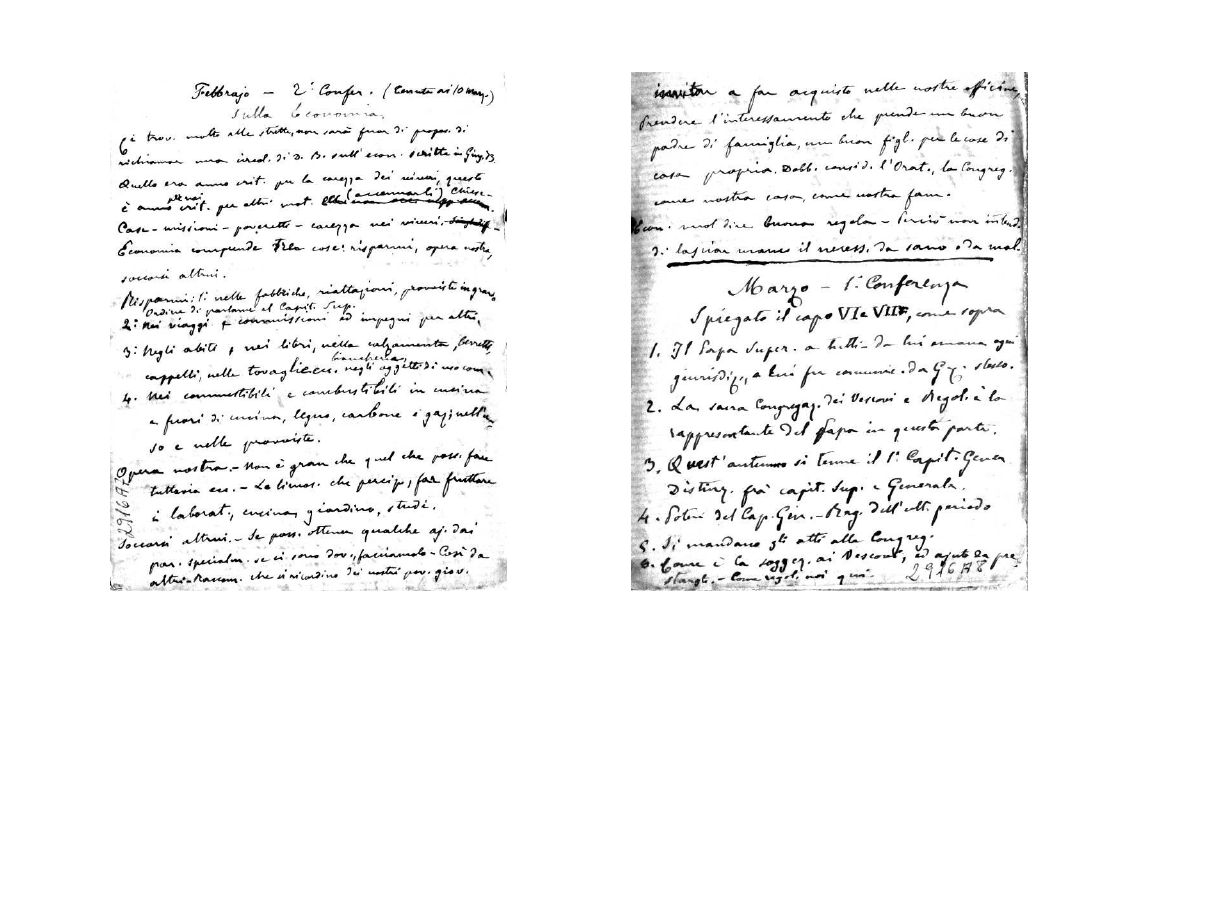 Febbrajo — 2ª Confer. (tenuta ai 10 marz.)
Sulla Economia.
Ci trov. molto alle strette, non sarà fuor di propos. di
richiamar una circol. di D. B. sull'econ. scritta in Giug. 73.
Quello era anno crit. per la carezza dei viveri, questo
è anno crit. per altri mot. (accennarli) Chiese-
Case - missioni - poveretti - carezza nei viveri.
Economia comprende tre cose: risparmi, opera nostra,
soccorsi altrui.
Risparmi: 1: nelle fabbriche, riattazioni, provviste in gran.
Ordine di parlarne al Capit. Sup.
2: Nei viaggi e commissioni ed impegni per altri,
3: Negli abiti, nei libri, nella calzamenta, berrette,
biancheria,
cappelli, nelle tovaglie ecc. negli oggetti di uso com.
4. Nei commestibili e combustibili in cucina
e fuori di cucina, legna, carbone e gaz; nell'u-
so e nelle provviste.
Opera nostra. - Non è gran che quel che poss. fare
tuttavia ecc. - Le limos. che percip., far fruttare
i laborat., cucina, giardino, studi.
Soccorsi altrui. - Se poss. ottener qualche aj. dai
par. specialm. se ci sono dov., facciamolo - Così da
altri - Raccom. che si ricordino dei nostri pov. giov.
2916A7
invitar a far acquisto nelle nostre officine,
Prendere l'interessamento che prende un buon
padre di famiglia, un buon figl. per le cose di
casa propria. Dobb. consid. l'Orat., la Congreg.
come nostra casa, come nostra fam.
Econ. vuol dire buona regola - Perciò non intend.
di lasciar manc. il necess. da sano o da mal.
Marzo — 1ª Conferenza
Spiegato il capo VI e VII, come sopra
1. Il Papa Super. a tutti - da lui emana ogni
giurisdiz., a lui fu comunic. da G. C. stesso.
2. La sacra Congregaz. dei Vescovi e Regol. è la
rappresentante del Papa in questa parte.
3. Quest'autunno si tenne il 1º Capit. Gener.
Disting. frà capit. Sup. e Generale.
4. Poteri del Cap. Gen. - Rag. dell'ult. periodo
5. Si mandano gli atti alla Congreg.
6. Come è la soggez. ai Vescovi, ed ajuto da pre
starsi. - Come regol. noi qui.
2916A8